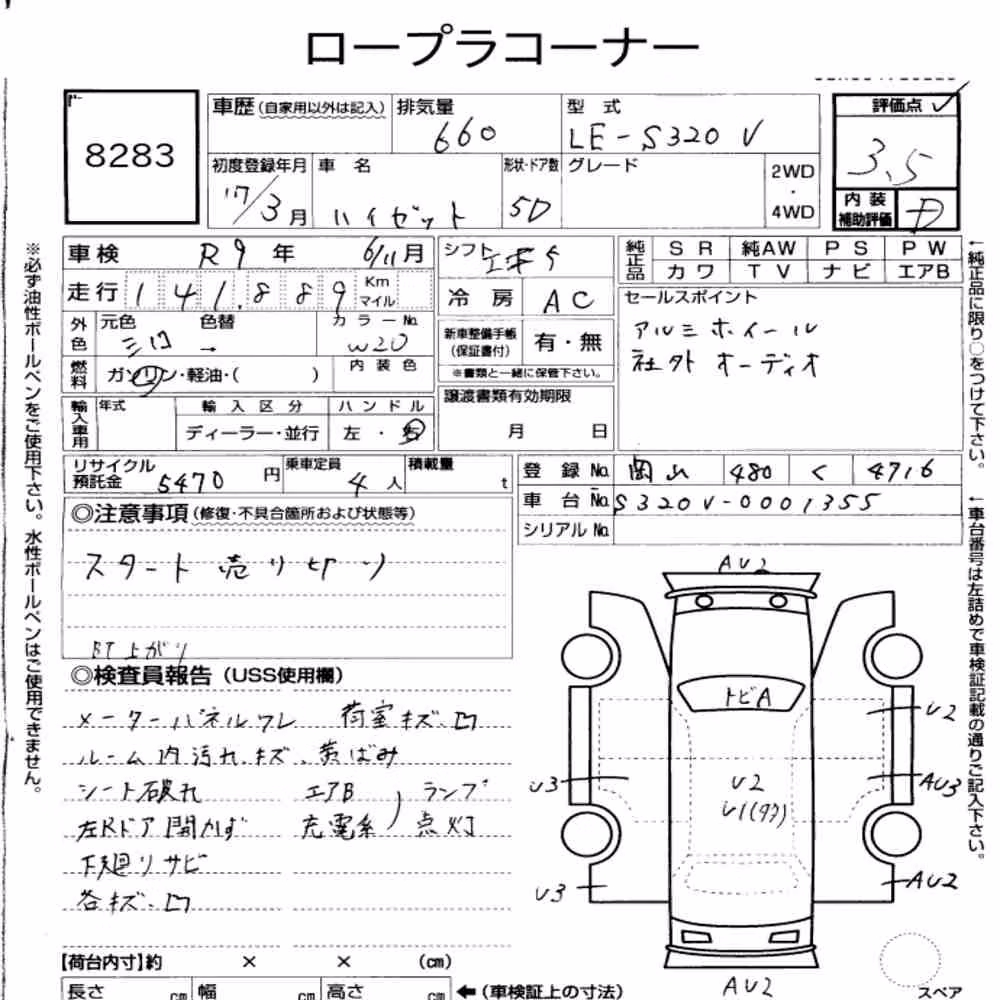 ロープラコーナー
8283
車歴(自家用以外は記入)
排気量
660
型 式
LE-S320V
評価点
3.5
初度登録年月
17/3月
車 名
ハイゼット
形状・ドア数
5D
グレード
2WD
・
4WD
内 装
補助評価
D
車検 R9年 6/11月
シフト
走行 141,889 Km マイル
冷 房 AC
純正品 SR 純AW PS PW
カワ TV ナビ エアB
セールスポイント
アルミホイール
社外オーディオ
外色 元色 色替 カラーNo.
W20
燃料 ガソリン・軽油・( ) 内 装 色
新車整備手帳
(保証書付) 有・無
※書類と一緒に保管下さい。
譲渡書類有効期限
月 日
輸入車用 年式 輸 入 区 分 ハ ン ド ル
ディーラー・並行 左 ・ 右
リサイクル
預託金 5470 円
乗車定員
4人
積載量
t
登 録 No. 岡山 480 く 4716
車 台 No. S320V-0001355
シリアル No.
◎注意事項(修復・不具合箇所および状態等)
スタート売り切り
BT上がり
◎検査員報告(USS使用欄)
メーターパネルワレ 荷室キズ、凹
ルーム内汚れ、キズ、黄ばみ
シート破れ エアB ランプ
左Rドア開かず 充電系 点灯
下廻りサビ
各キズ、凹
AU2
トビA
U2
U3
AU3
U2
U1(タワ)
U3
AU2
AU2
スペア
【荷台内寸】約 × × (cm)
長さ cm 幅 cm 高さ cm ←(車検証上の寸法)
※必ず油性ボールペンをご使用下さい。水性ボールペンはご使用できません。
←純正品に限り○をつけて下さい。
←車台番号は左詰めで車検証記載の通りご記入下さい。